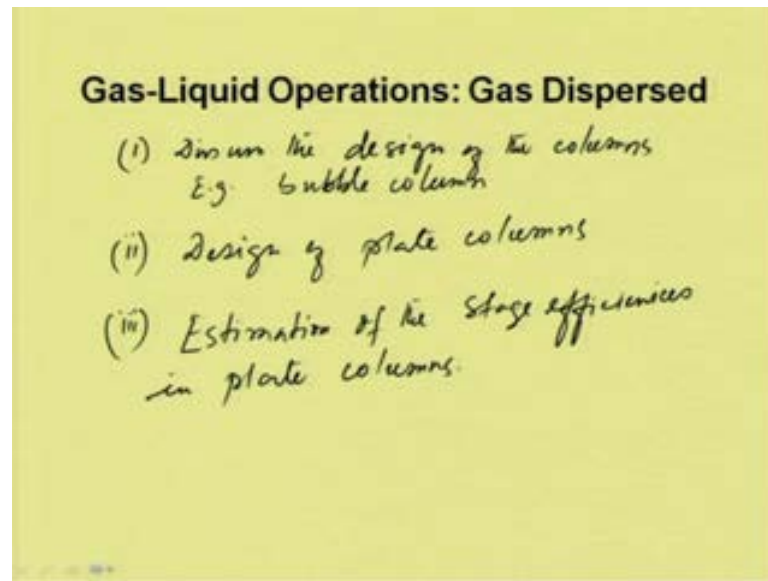 Gas-Liquid Operations: Gas Dispersed
(i) Discuss the design of the columns
E.g. bubble column
(ii) Design of plate columns
(iii) Estimation of the stage efficiencies
in plate columns.